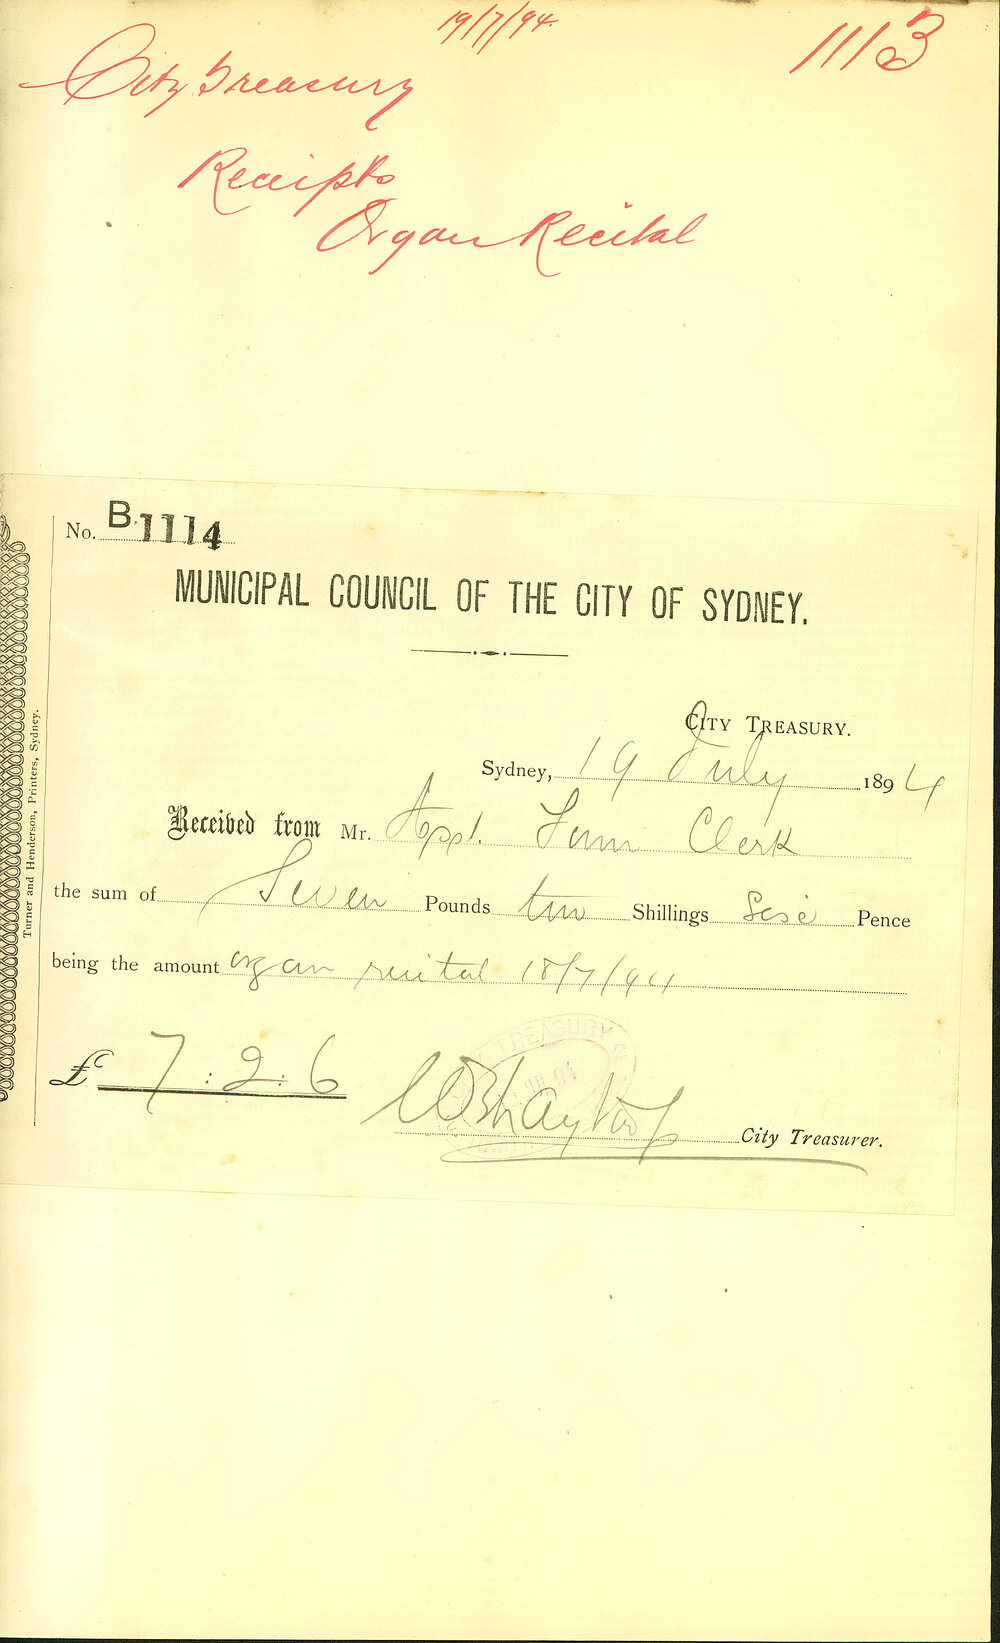 19/7/94.
1113
City Treasury
Receipts
Organ Recital
No. B.1114
MUNICIPAL COUNCIL OF THE CITY OF SYDNEY.
CITY TREASURY.
Sydney, 19 July 1894
Received from Mr. Asst. Town Clerk
the sum of Seven Pounds two Shillings Six Pence
being the amount organ recital 18/7/94
£ 7 : 2 : 6
TREASURY
City Treasurer.
Turner and Henderson, Printers, Sydney.